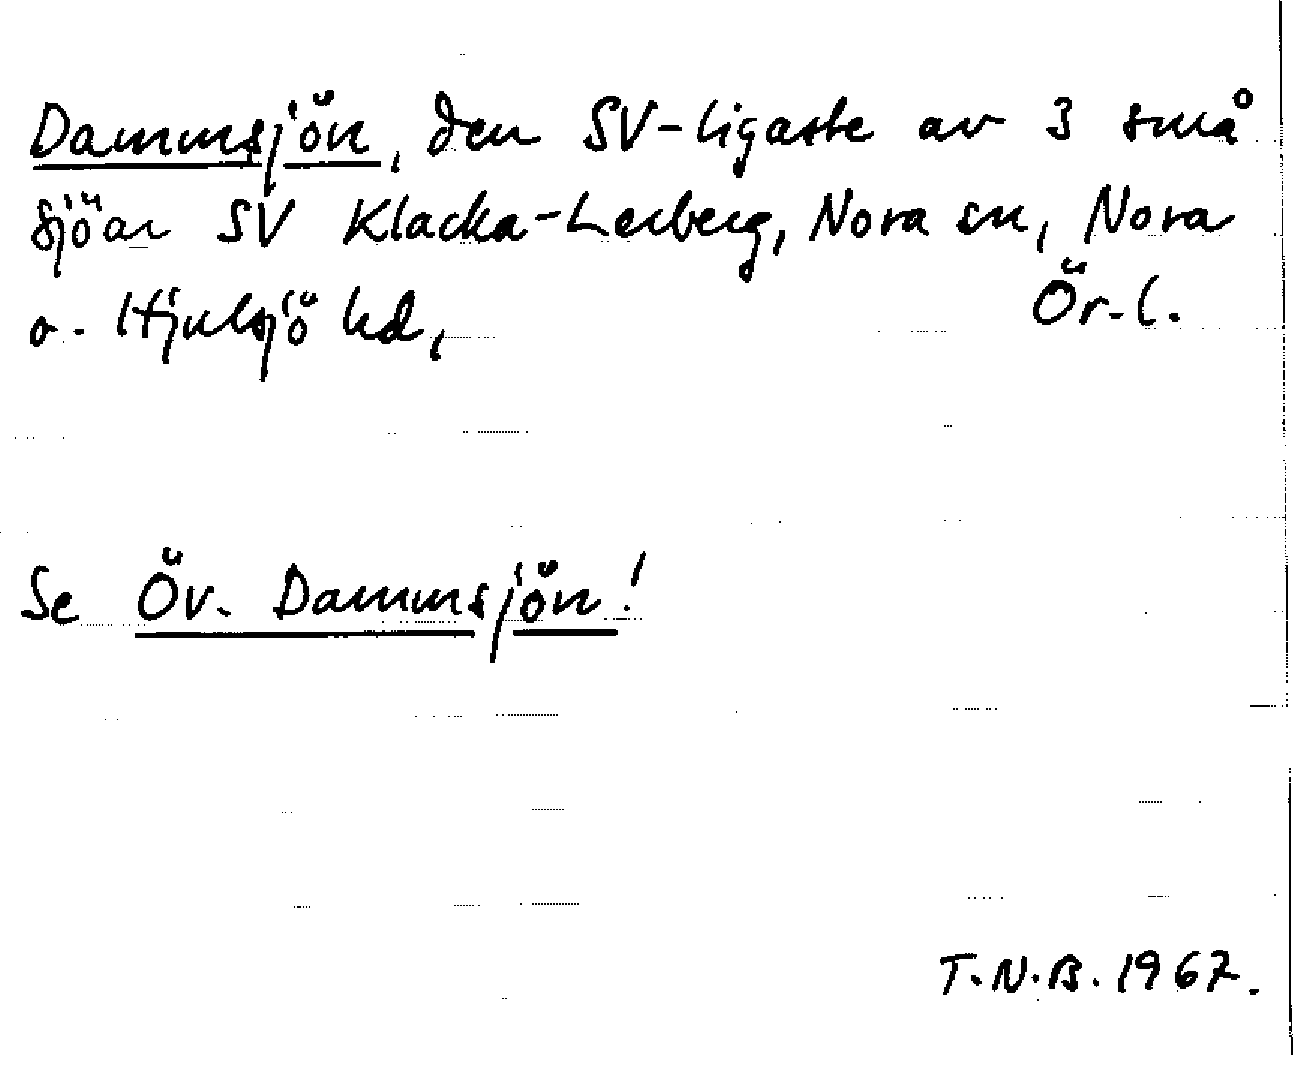 Dammsjön, den SV-ligaste av 3 små
sjöar SV Klacka-Lerberg, Nora sn, Nora
o. Hjulsjö hd, Ör-l.
Se Öv. Dammsjön!
T.N.B. 1967.